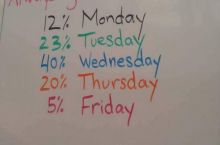 12% Monday
23% Tuesday
40% Wednesday
20% Thursday
5% Friday